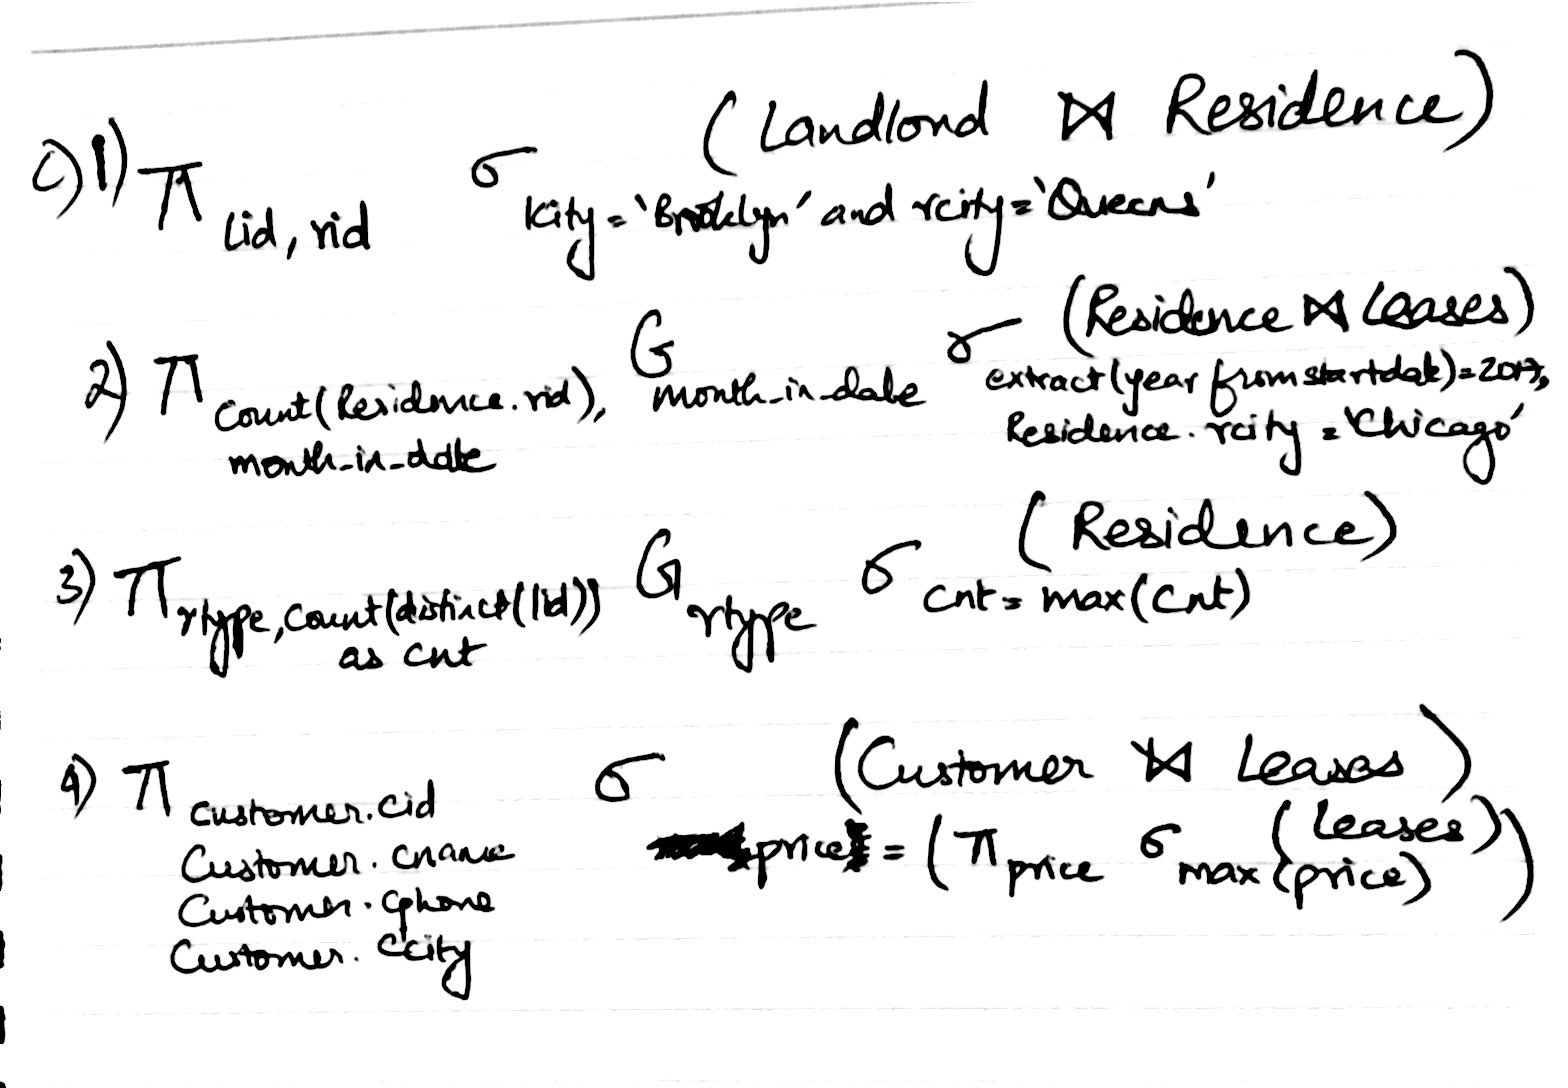 C) 1) π lid, rid σ lcity = 'Brooklyn' and rcity = 'Queens' (Landlord ⋈ Residence)
2) π count(Residence.rid), month_in_date G month_in_date σ extract(year from startdate) = 2017, Residence.rcity = 'Chicago' (Residence ⋈ Leases)
3) π rtype, count(distinct(lid)) as cnt G rtype σ cnt = max(cnt) (Residence)
4) π customer.cid σ (Customer ⋈ Leases)
Customer.cname price = (π price σ max(price) (Leases))
Customer.cphone
Customer.ccity